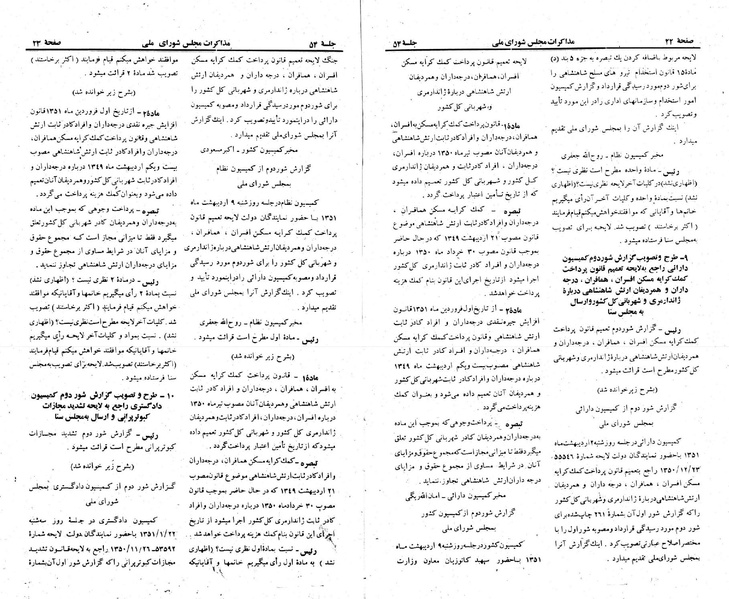 صفحه ۲۲
مذاکرات مجلس شورای ملی
جلسه ۵۳
لایحه مربوط باضافه کردن یك تبصره به جزء ۵ بند (د)
ماده ۱۵ قانون استخدام نیرو های مسلح شاهنشاهی را
برای شور دوم مورد رسیدگی قرارداد و گزارش کمیسیون
امور استخدام و سازمانهای اداری را در این مورد تأیید
وتصویب کرد .
اینك گزارش آن را بمجلس شورای ملی تقدیم
میدارد .
مخبر کمیسیون نظام - روح‌الله جعفری
رئیس - ماده واحده مطرح است نظری نیست ؟
(اظهاری نشد) در کلیات آخر لایحه نظری نیست ؟ (اظهاری
نشد) نسبت بمادۀ واحده و کلیات آخر آن رأی میگیریم
خانمها و آقایانی که موافقند خواهش میکنم قیام فرمایند
(اکثر برخاستند) تصویب شد . لایحه برای تصویب
به مجلس سنا فرستاده میشود .
۹- طرح و تصویب گزارش شور دوم کمیسیون
دارائی راجع به لایحه تعمیم قانون پرداخت
کمك کرایه مسکن افسران ، همافران ، درجه
داران و همردیفان ارتش شاهنشاهی درباره
ژاندارمری و شهربانی کل کشور و ارسال
به مجلس سنا
رئیس - گزارش شور دوم تعمیم قانون پرداخت
کمك کرایه مسکن افسران ، همافران ، درجه‌داران و
همردیفان ارتش شاهنشاهی درباره ژاندارمری و شهربانی
کل کشور مطرح است قرائت میشود .
(بشرح زیر خوانده شد)
گزارش شور دوم از کمیسیون دارائی
بمجلس شورای ملی
کمیسیون دارائی در جلسه روز شنبه ۲ اردیبهشت ماه
۱۳۵۱ با حضور نمایندگان دولت لایحه شماره ۵۵۵۴۶
۱۳۵۰/۱۲/۲۳ راجع بتعمیم قانون پرداخت کمك کرایه
مسکن افسران ، همافران ، درجه داران و همردیفان
ارتش شاهنشاهی درباره ژاندارمری و شهربانی کل کشور
که گزارش شور اول آن بشماره ۲۶۱ چاپ شده برای
شور دوم مورد رسیدگی قرارداد و مصوبه شور اول را با
مختصر اصلاح عبارتی تصویب کرد . اینك گزارش آنرا
بمجلس شورای ملی تقدیم میدارد .
لایحه تعمیم قانون پرداخت کمك کرایه مسکن
افسران، همافران، درجه‌داران و همردیفان
ارتش شاهنشاهی درباره ژاندارمری
و شهربانی کل کشور
ماده۱- قانون پرداخت کمك کرایه مسکن افسران،
همافران، درجه‌داران و افراد کادر ثابت ارتش شاهنشاهی
و همردیفان آنان مصوب تیر ماه ۱۳۵۰ درباره افسران،
درجه‌داران و افراد کادر ثابت و همردیفان ژاندارمری
کل کشور و شهربانی کل کشور تعمیم داده میشود
که از تاریخ تأمین اعتبار پرداخت گردد .
تبصره - کمك کرایه مسکن افسران ، همافران ،
درجه‌داران و افراد کادر ثابت ارتش شاهنشاهی موضوع
قانون مصوب ۲۱ اردیبهشت ۱۳۴۹ که در حال حاضر
بموجب قانون مصوب ۳۰ خرداد ماه ۱۳۵۰ درباره
درجه‌داران و افراد کادر ثابت ژاندارمری کل کشور
اجرا میشود از تاریخ اجرای این قانون بنام کمك هزینه
پرداخت خواهد شد.
ماده۲- از تاریخ اول فروردین ماه ۱۳۵۱ قانون
افزایش جیره نقدی درجه‌داران و افراد کادر ثابت
ارتش شاهنشاهی و قانون پرداخت کمك کرایه مسکن
افسران ، همافران ، درجه‌داران و افراد کادر ثابت ارتش
شاهنشاهی مصوب بیست و یکم اردیبهشت ماه ۱۳۴۹
درباره درجه‌داران و افراد کادر ثابت شهربانی کل کشور
و همردیفان آنان تعمیم داده می‌شود و بعنوان کمك
هزینه پرداخت می‌گردد .
تبصره - پرداخت وجوهی که بموجب این ماده
به‌درجه‌داران و همردیفان کادر شهربانی کل کشور تعلق
میگیرد فقط تا میزانی مجاز است که مجموع حقوق و مزایای
آنان در شرایط مساوی از مجموع حقوق و مزایای
درجه داران ارتش شاهنشاهی تجاوز ننماید .
مخبر کمیسیون دارائی - امان‌الله ریگی
گزارش شور دوم از کمیسیون کشور
بمجلس شورای ملی
کمیسیون کشور در جلسه روز شنبه ۹ اردیبهشت ماه
۱۳۵۱ با حضور سپهبد کاتوزیان معاون وزارت
جلسه ۵۳
مذاکرات مجلس شورای ملی
صفحه ۲۳
جنگ لایحه تعمیم قانون پرداخت کمك کرایه مسکن
افسران ، همافران ، درجه داران و همردیفان ارتش
شاهنشاهی درباره ژاندارمری و شهربانی کل کشور را
برای شور دوم مورد رسیدگی قرارداد و مصوبه کمیسیون
دارائی را در اینمورد تأیید و تصویب کرد. اینك گزارش
آنرا بمجلس شورای ملی تقدیم میدارد
مخبر کمیسیون کشور - اکبر مسعودی
گزارش شور دوم از کمیسیون نظام
بمجلس شورای ملی
کمیسیون نظام در جلسه روز شنبه ۹ اردیبهشت ماه
۱۳۵۱ با حضور نمایندگان دولت لایحه تعمیم قانون
پرداخت کمك کرایه مسکن افسران ، همافران ،
درجه‌داران و همردیفان ارتش شاهنشاهی درباره ژاندارمری
و شهربانی کل کشور را برای شور دوم مورد رسیدگی
قرارداد و مصوبه کمیسیون دارائی را در اینمورد تأیید و
تصویب کرد . اینك گزارش آنرا بمجلس شورای ملی
تقدیم میدارد .
مخبر کمیسیون نظام - روح‌الله جعفری
رئیس - مادۀ اول مطرح است قرائت میشود.
(بشرح زیر خوانده شد)
ماده۱ - قانون پرداخت کمك کرایه مسکن
به افسران ، همافران ، درجه‌داران و افراد کادر ثابت
ارتش شاهنشاهی و همردیفان آنان مصوب تیر ماه ۱۳۵۰
درباره افسران، درجه‌داران، افراد کادر ثابت و همردیفان
ژاندارمری کل کشور و شهربانی کل کشور تعمیم داده
میشود که از تاریخ تأمین اعتبار پرداخت گردد .
تبصره - کمك کرایه مسکن افسران، درجه‌داران
و افراد کادر ثابت ارتش شاهنشاهی موضوع قانون مصوب
۲۱ اردیبهشت ۱۳۴۹ که در حال حاضر بموجب قانون
مصوب ۳۰ خرداد ماه ۱۳۵۰ درباره درجه‌داران و افراد
کادر ثابت ژاندارمری کل کشور اجرا میشود از تاریخ
اجرای این قانون بنام کمك هزینه پرداخت خواهد شد
رئیس - نسبت بماده اول نظری نیست؟ (اظهاری
نشد) به ماده اول رأی میگیریم خانمها و آقایانیکه
موافقند خواهش میکنم قیام فرمایند (اکثر برخاستند)
تصویب شد ماده ۲ قرائت میشود .
(بشرح زیر خوانده شد)
ماده۲ - از تاریخ اول فروردین ماه ۱۳۵۱ قانون
افزایش جیره نقدی درجه‌داران و افراد کادر ثابت ارتش
شاهنشاهی و قانون پرداخت کمك کرایه مسکن افسران، همافران
درجه‌داران و افراد کادر ثابت ارتش شاهنشاهی مصوب
بیست و یکم اردیبهشت ماه ۱۳۴۹ درباره درجه‌داران و
افراد کادر ثابت شهربانی کل کشور و همردیفان آنان تعمیم
داده می‌شود و بعنوان کمك هزینه پرداخت می‌گردد .
تبصره - پرداخت وجوهی که بموجب این ماده
به‌درجه‌داران و همردیفان کادر شهربانی کل کشور تعلق
میگیرد فقط تا میزانی مجاز است که مجموع حقوق و
مزایای آنان در شرایط مساوی از مجموع حقوق و
مزایای درجه‌داران ارتش شاهنشاهی تجاوز ننماید.
رئیس - در مادۀ ۲ نظری نیست ؟ (اظهاری نشد)
نسبت بمادۀ ۲ رأی میگیریم خانمها و آقایانیکه موافقند
خواهش میکنم قیام فرمایند . (اکثر برخاستند) تصویب
شد. کلیات آخر لایحه مطرح است نظری نیست؟ (اظهاری
نشد) . نسبت بمواد و کلیات آخر لایحه رأی میگیریم
خانمها و آقایانیکه موافقند خواهش میکنم قیام فرمایند
(اکثر برخاستند) تصویب شد. لایحه برای تصویب به مجلس
سنا فرستاده میشود .
۱۰ - طرح و تصویب گزارش شور دوم کمیسیون
دادگستری راجع به لایحه تشدید مجازات
کبوتر پرانی و ارسال به مجلس سنا
رئیس - گزارش شور دوم تشدید مجازات
کبوتر پرانی مطرح است قرائت میشود .
(بشرح زیر خوانده شد)
گزارش شور دوم از کمیسیون دادگستری بمجلس
شورای ملی
کمیسیون دادگستری در جلسۀ روز سه شنبه
۱۳۵۱/۱/۲۲ با حضور نمایندگان دولت لایحۀ شمارۀ
۵۳۵۹۲-۱۳۵۰/۱۱/۲۶ راجع به لایحه قانون تشدید
مجازات کبوتر پرانی را که گزارش شور اول آن بشماره